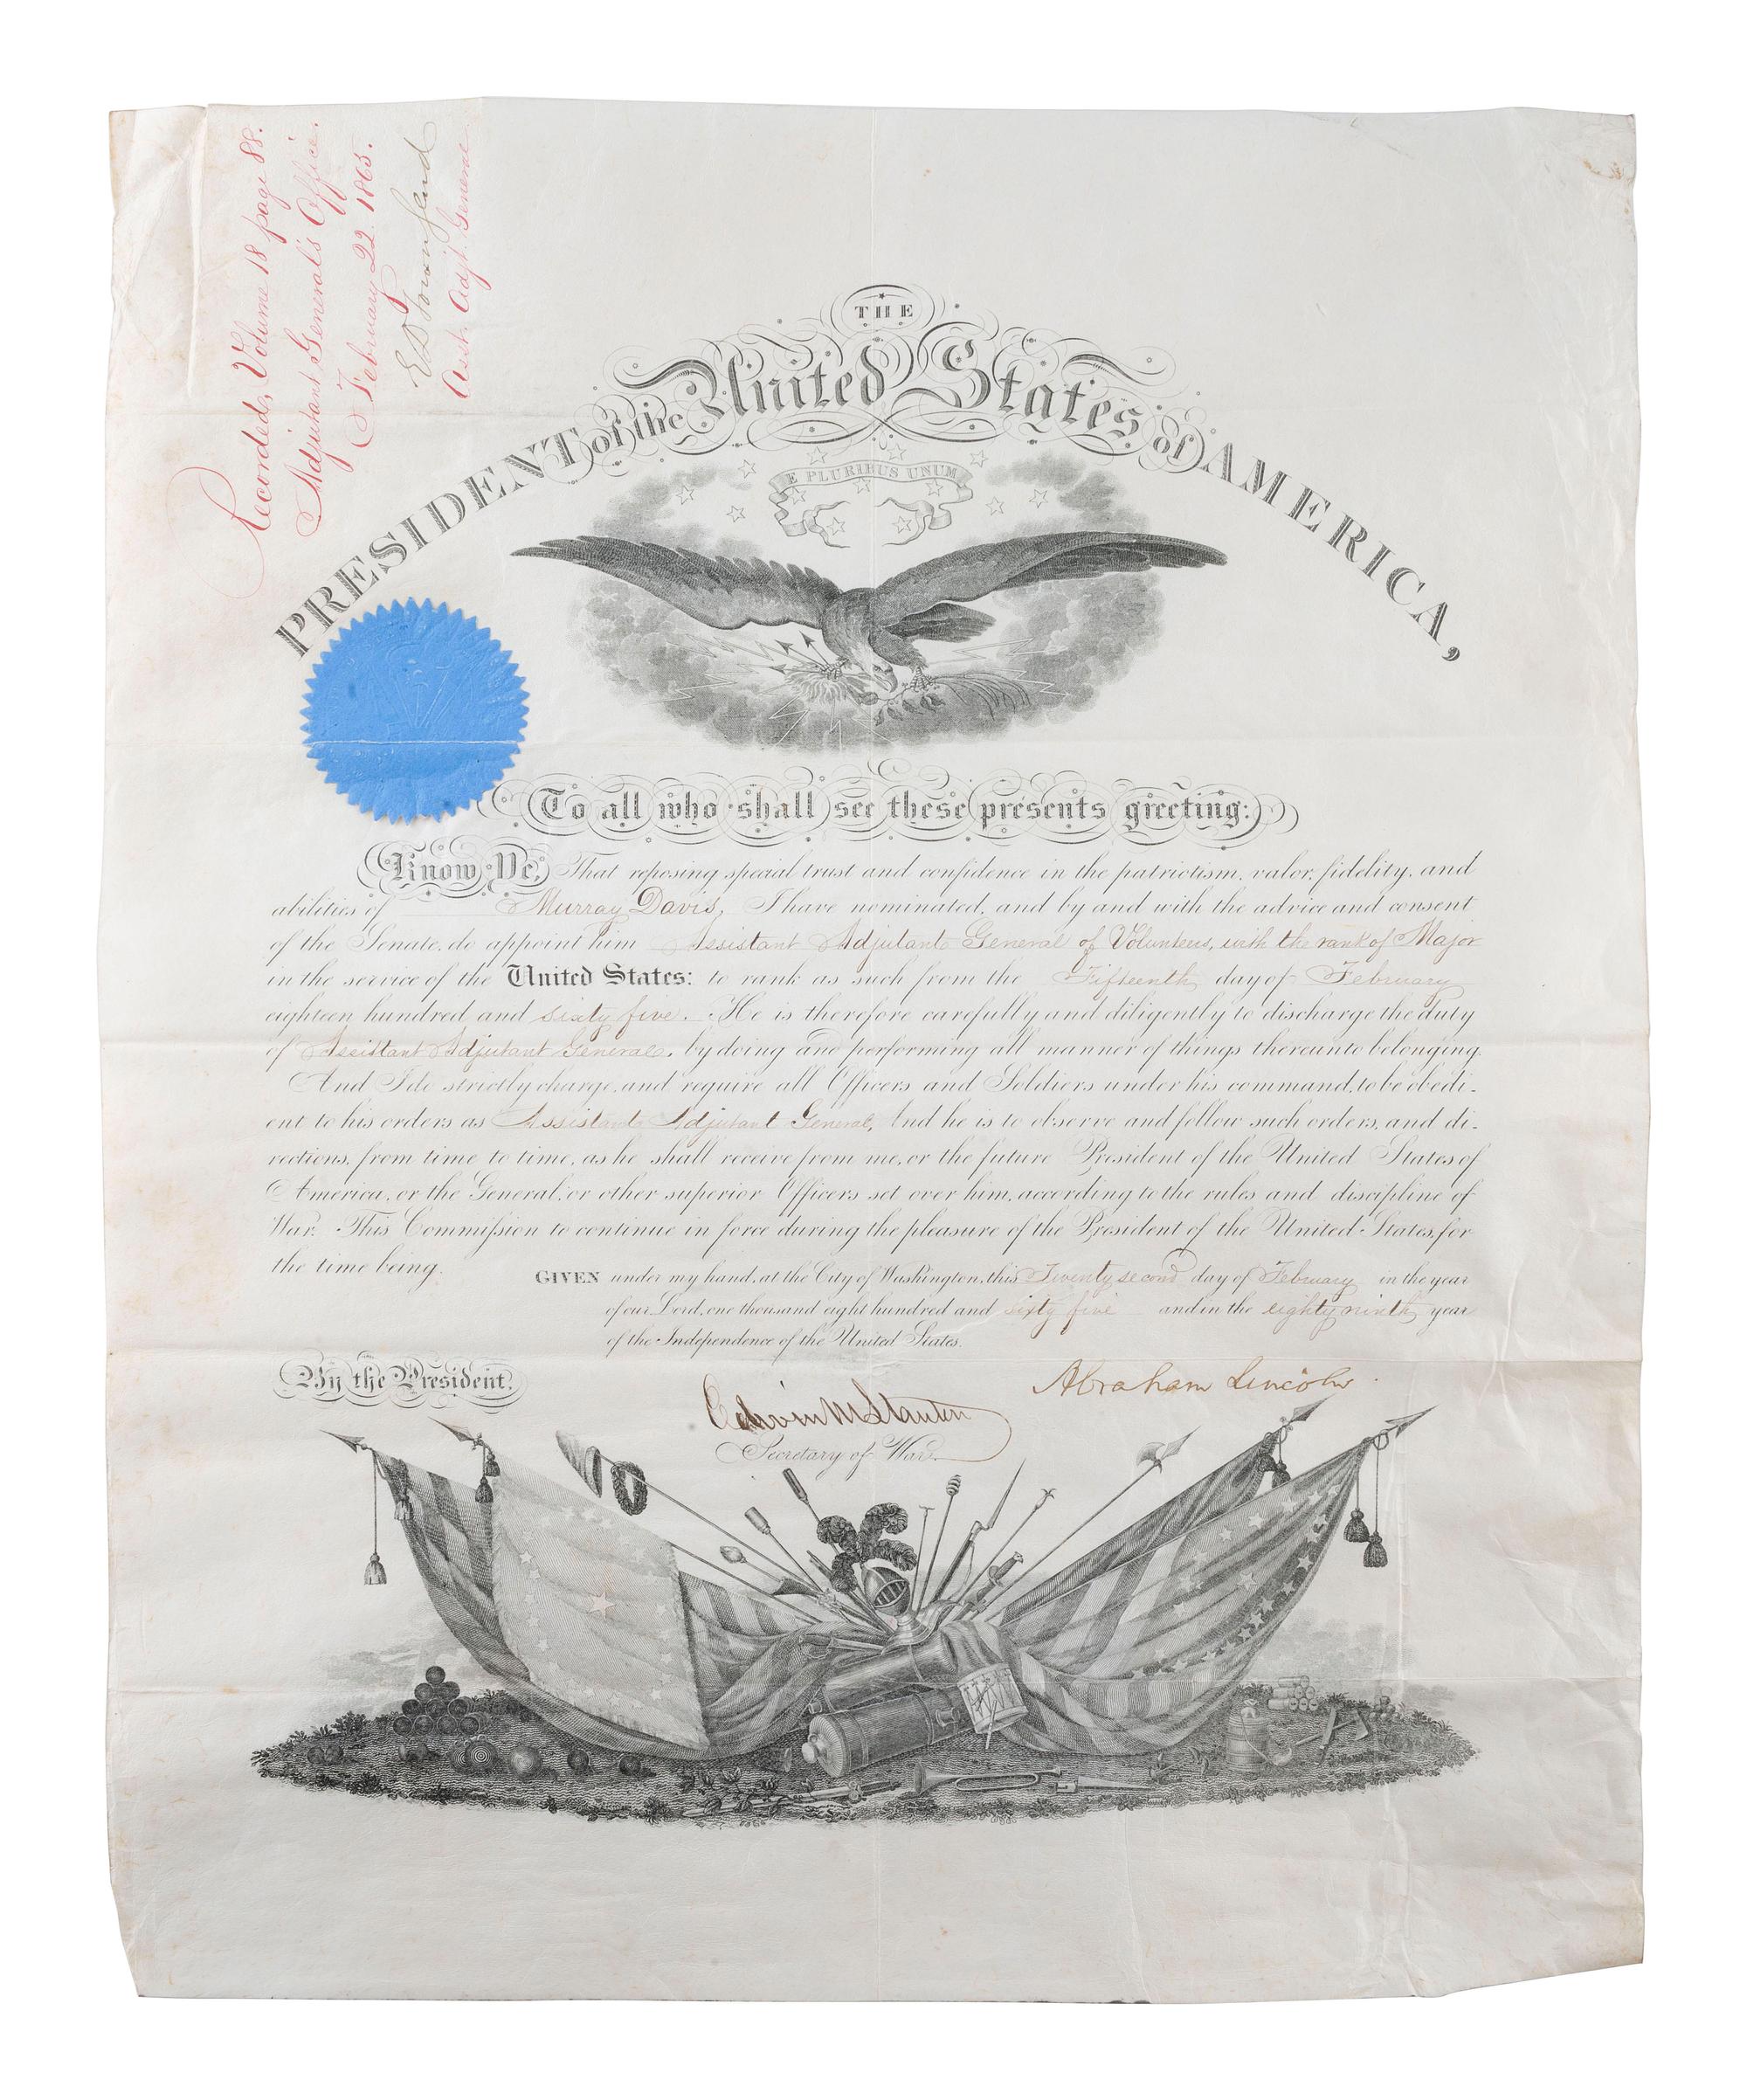 Recorded, Volume 18 page 88.
Adjutant General's Office.
February 22. 1865.
E D Townsend
Asst. Adjt. General
THE
PRESIDENT of the United States of AMERICA,
E PLURIBUS UNUM
To all who shall see these presents greeting:
Know Ye, That reposing special trust and confidence in the patriotism, valor, fidelity, and
abilities of Murray Davis, I have nominated, and by and with the advice and consent
of the Senate, do appoint him Assistant Adjutant General of Volunteers, with the rank of Major
in the service of the United States: to rank as such from the Fifteenth day of February
eighteen hundred and sixty five. He is therefore carefully and diligently to discharge the duty
of Assistant Adjutant General, by doing and performing all manner of things thereunto belonging.
And I do strictly charge, and require all Officers and Soldiers under his command, to be obedi-
ent to his orders as Assistant Adjutant General, And he is to observe and follow such orders, and di-
rections, from time to time, as he shall receive from me, or the future President of the United States of
America, or the General, or other superior Officers set over him, according to the rules and discipline of
War. This Commission to continue in force during the pleasure of the President of the United States, for
the time being.
GIVEN under my hand, at the City of Washington, this Twenty second day of February in the year
of our Lord, one thousand eight hundred and sixty five and in the eighty ninth year
of the Independence of the United States.
By the President.
Abraham Lincoln.
Edwin M Stanton
Secretary of War.